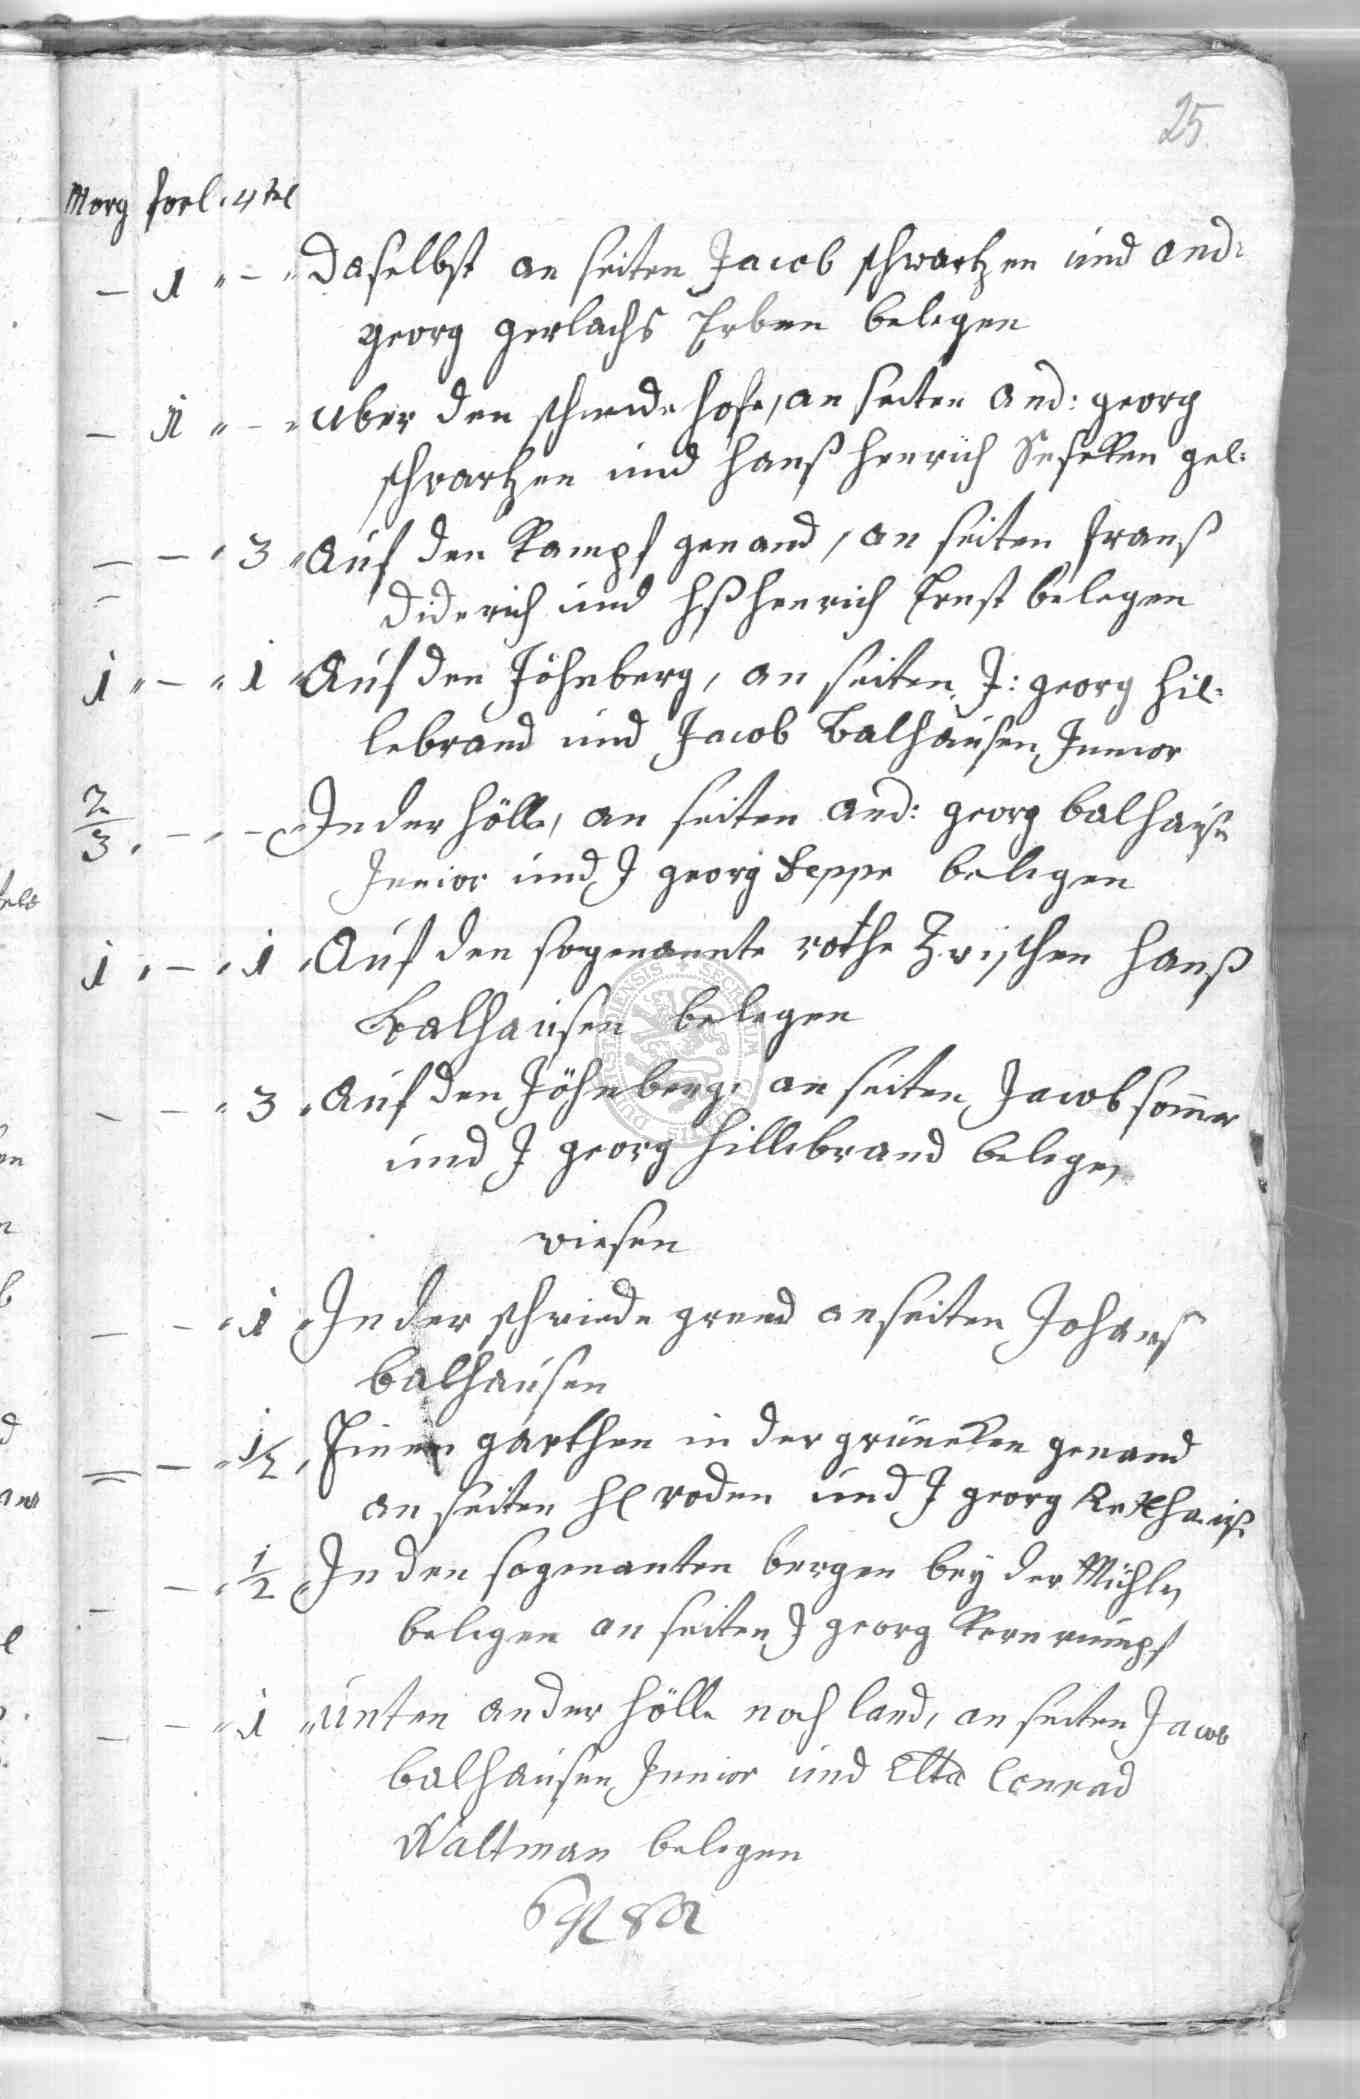 25.
Morg forl. 4tel
– 1 „ – „ Daselbst an seiten Jacob schwartzen und And:
Georg Gerlachs Erben belegen
– 1 „ – „ Uber den schmide hofe, an seiten And: Georg
schwartzen und Hanß Henrich gel:
– – „ 3 „ Auf den Kampf genand, an seiten Franß
Diderich und Hß Henrich Ernst belegen
1 „ – „ 1 „ Auf den Jöhnberg, an seiten J: Georg Hil-
lebrand und Jacob Balhausen Junior
2/3 „ – „ – In der Hölle, an seiten And: Georg Balhauß
Junior und J Georg Seppe belegen
1 „ – „ 1 „ Auf den sogenannte rothe Zwischen Hanß
Balhausen belegen
– – „ 3 „ Auf den Jöhnberg, an seiten Jacob Somer
und J Georg Hillebrand belegen
Wiesen
– – „ 1 „ In der schmide grund an seiten Johans
Balhausen
– – „ 1/2 „ Einen garthen in der grüneken genand
an seiten Hl roden und J Georg
– – „ 1/2 „ In den sogenanten bergen bey der Mühlen
belegen an seiten J Georg Kernrumpf
– – „ 1 „ Unten an der Hölle noch land, an seiten Jacob
Balhausen Junior und Conrad
Waltman belegen